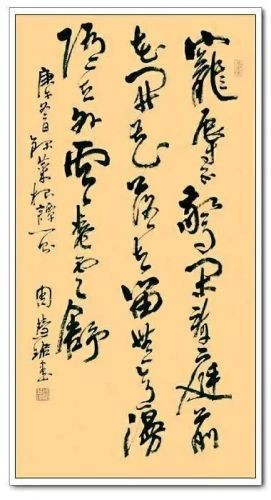 寵辱不驚閑看庭前
花開花落去留無意漫
隨天外雲卷云舒
錄菜根譚一句 周慧珺書